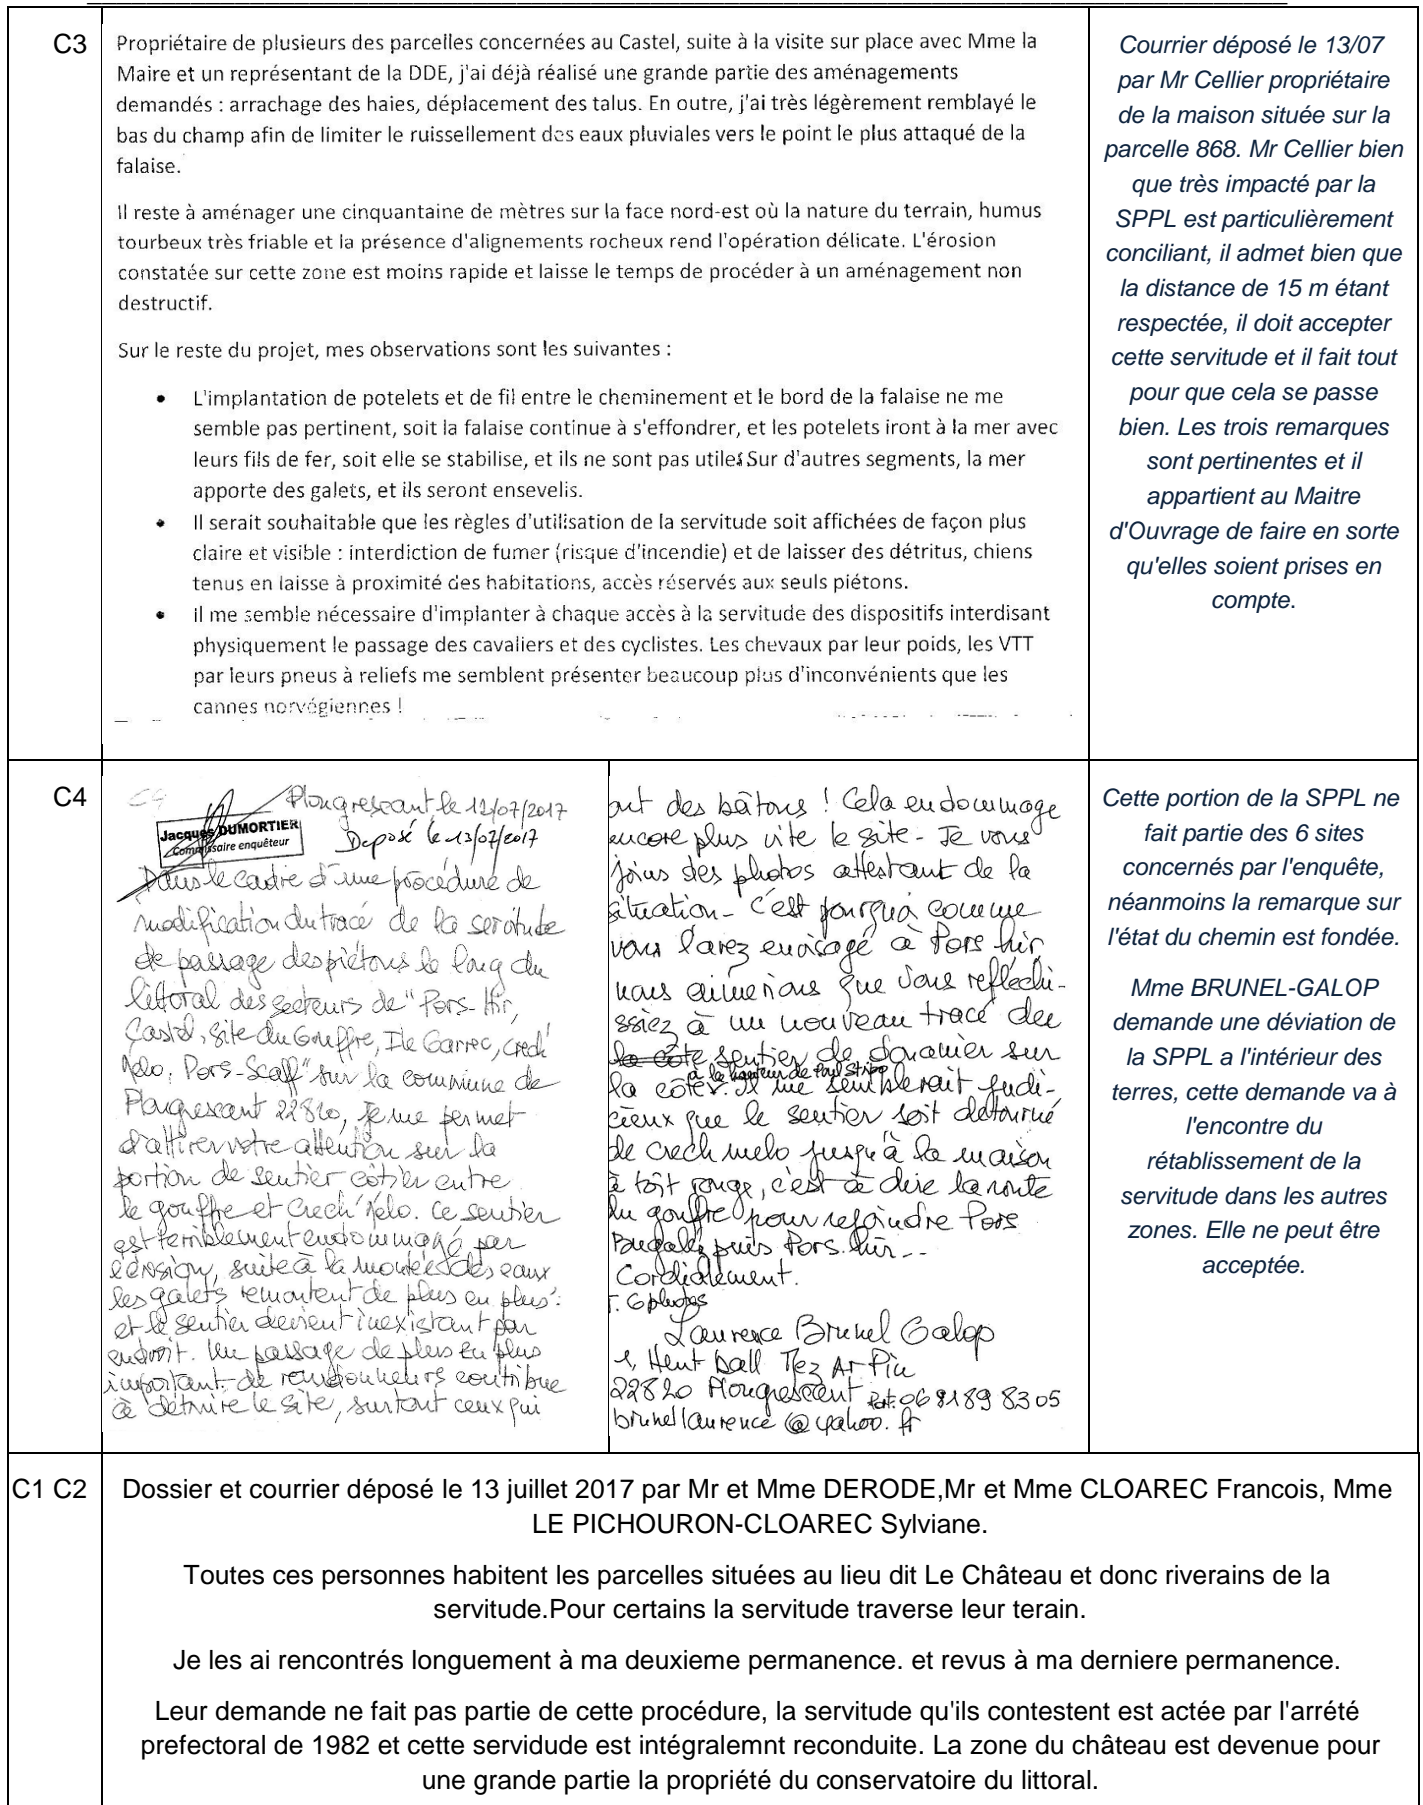 C3
Propriétaire de plusieurs des parcelles concernées au Castel, suite à la visite sur place avec Mme la
Maire et un représentant de la DDE, j'ai déjà réalisé une grande partie des aménagements
demandés : arrachage des haies, déplacement des talus. En outre, j'ai très légèrement remblayé le
bas du champ afin de limiter le ruissellement des eaux pluviales vers le point le plus attaqué de la
falaise.
Il reste à aménager une cinquantaine de mètres sur la face nord-est où la nature du terrain, humus
tourbeux très friable et la présence d'alignements rocheux rend l'opération délicate. L'érosion
constatée sur cette zone est moins rapide et laisse le temps de procéder à un aménagement non
destructif.
Sur le reste du projet, mes observations sont les suivantes :
• L'implantation de potelets et de fil entre le cheminement et le bord de la falaise ne me
semble pas pertinent, soit la falaise continue à s'effondrer, et les potelets iront à la mer avec
leurs fils de fer, soit elle se stabilise, et ils ne sont pas utiles Sur d'autres segments, la mer
apporte des galets, et ils seront ensevelis.
• Il serait souhaitable que les règles d'utilisation de la servitude soit affichées de façon plus
claire et visible : interdiction de fumer (risque d'incendie) et de laisser des détritus, chiens
tenus en laisse à proximité des habitations, accès réservés aux seuls piétons.
• Il me semble nécessaire d'implanter à chaque accès à la servitude des dispositifs interdisant
physiquement le passage des cavaliers et des cyclistes. Les chevaux par leur poids, les VTT
par leurs pneus à reliefs me semblent présenter beaucoup plus d'inconvénients que les
cannes norvégiennes !
Courrier déposé le 13/07
par Mr Cellier propriétaire
de la maison située sur la
parcelle 868. Mr Cellier bien
que très impacté par la
SPPL est particulièrement
conciliant, il admet bien que
la distance de 15 m étant
respectée, il doit accepter
cette servitude et il fait tout
pour que cela se passe
bien. Les trois remarques
sont pertinentes et il
appartient au Maitre
d'Ouvrage de faire en sorte
qu'elles soient prises en
compte.
C4
Plougrescant le 12/07/2017
Jacques DUMORTIER
Commissaire enquêteur
Déposé le 13/07/2017
Dans le cadre d'une procédure de
modification du tracé de la servitude
de passage des piétons le long du
littoral des secteurs de "Pors-Hir,
Castel, site du Gouffre, Ile Garrec, crech
Melo, Pors-Scaff" sur la commune de
Plougrescant 22820, je me permet
d'attirer votre attention sur la
portion de sentier côtier entre
le gouffre et Crech'Melo. Ce sentier
est terriblement endommagé par
l'érosion, suite à la montée des eaux
les galets remontent de plus en plus
et le sentier devient inexistant par
endroit. Un passage de plus en plus
important de randonneurs contribue
à détruire le site, surtout ceux qui
ont des bâtons ! Cela endommage
encore plus vite le site - Je vous
joins des photos attestant de la
situation - C'est pourquoi comme
vous l'avez envisagé à Pors hir,
nous aimerions que vous réfléchi-
ssiez à un nouveau tracé du
la côte sentier de douanier sur
la côte à la hauteur de Poul Stripo. Il me semblerait judi-
cieux que le sentier soit détourné
de crech melo jusqu'à la maison
à toit rouge, c'est à dire la route
du gouffre pour rejoindre Pors
Bugalés puis Pors hir...
Cordialement.
6 photos
Laurence Brunel Galop
1, Hent Dall Tez Ar Pin
22820 Plougrescant Port. 06 81 89 83 05
brunellaurence @ yahoo. fr
Cette portion de la SPPL ne
fait partie des 6 sites
concernés par l'enquête,
néanmoins la remarque sur
l'état du chemin est fondée.
Mme BRUNEL-GALOP
demande une déviation de
la SPPL a l'intérieur des
terres, cette demande va à
l'encontre du
rétablissement de la
servitude dans les autres
zones. Elle ne peut être
acceptée.
C1 C2
Dossier et courrier déposé le 13 juillet 2017 par Mr et Mme DERODE,Mr et Mme CLOAREC Francois, Mme
LE PICHOURON-CLOAREC Sylviane.
Toutes ces personnes habitent les parcelles situées au lieu dit Le Château et donc riverains de la
servitude.Pour certains la servitude traverse leur terain.
Je les ai rencontrés longuement à ma deuxieme permanence. et revus à ma derniere permanence.
Leur demande ne fait pas partie de cette procédure, la servitude qu'ils contestent est actée par l'arrété
prefectoral de 1982 et cette servidude est intégralemnt reconduite. La zone du château est devenue pour
une grande partie la propriété du conservatoire du littoral.